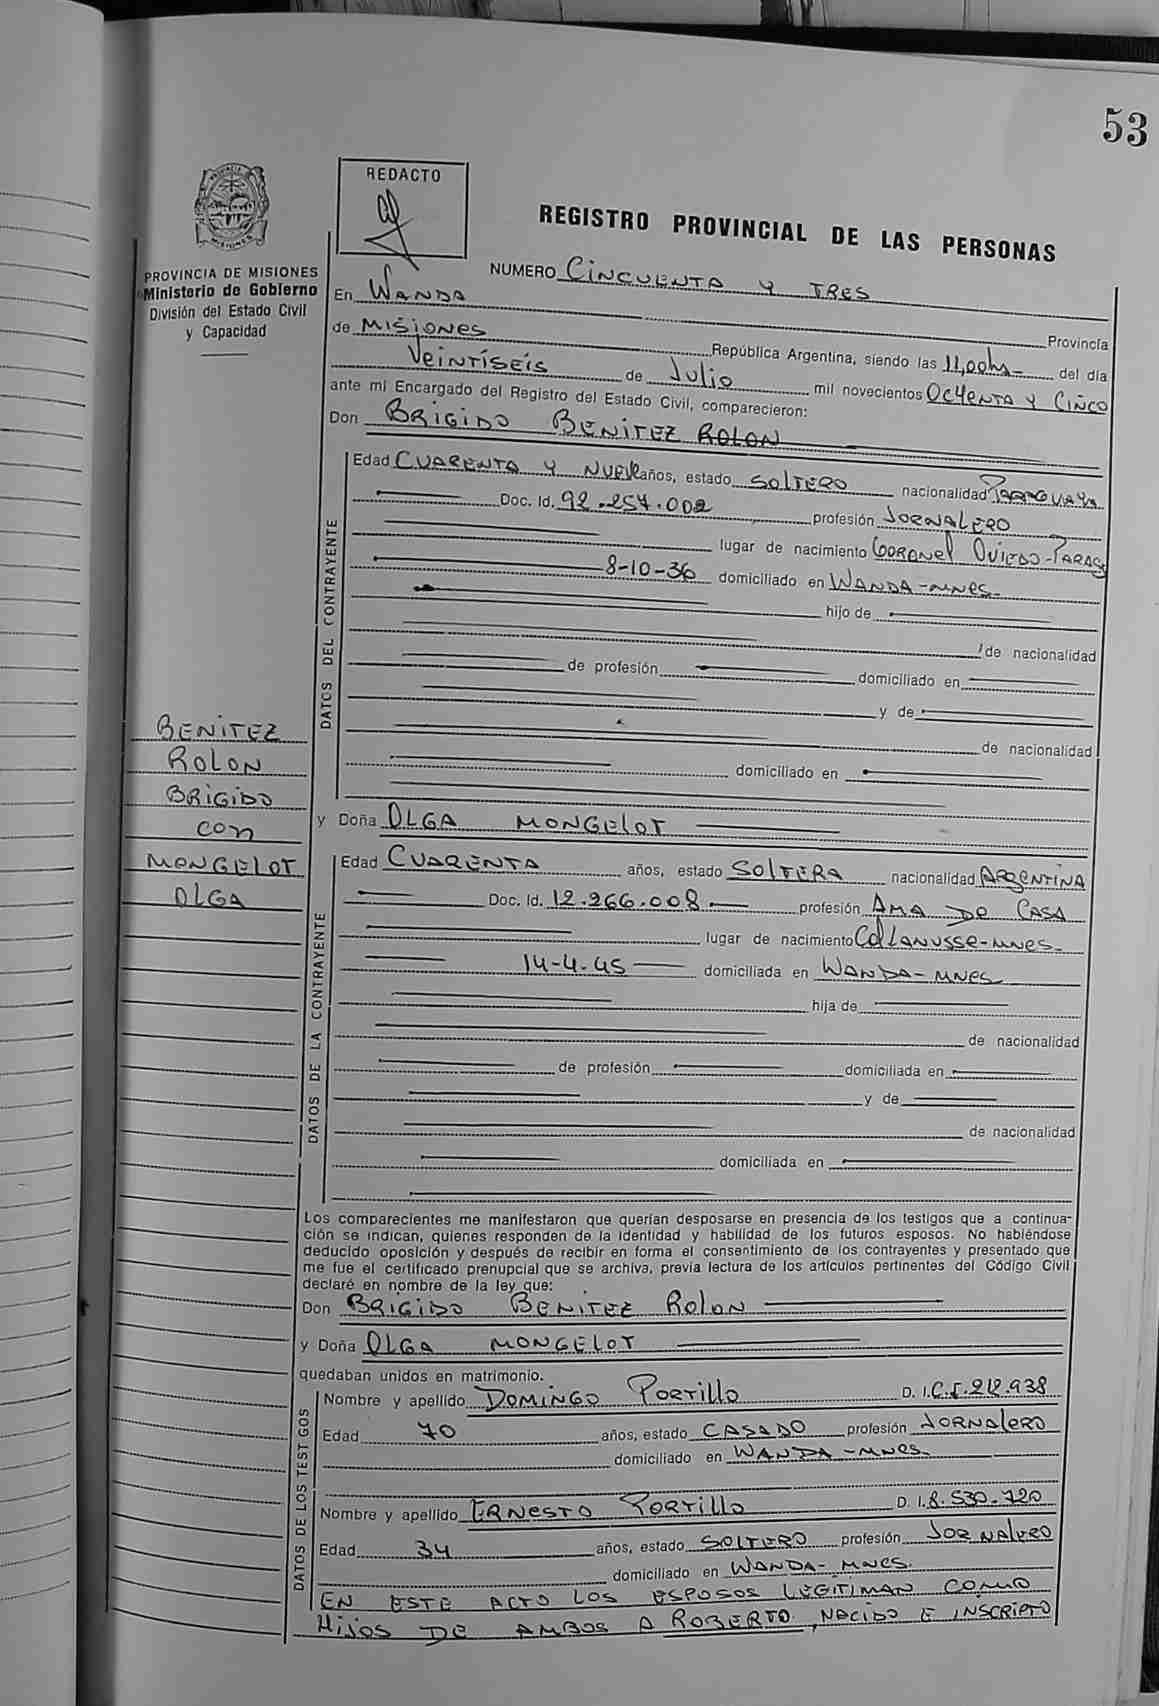 53
PROVINCIA DE MISIONES
Ministerio de Gobierno
División del Estado Civil
y Capacidad
REDACTO
REGISTRO PROVINCIAL DE LAS PERSONAS
NUMERO CINCUENTA Y TRES
En WANDA Provincia
de MISIONES República Argentina, siendo las 11,00hs del día
VEINTISEIS de JULIO mil novecientos OCHENTA Y CINCO
ante mi Encargado del Registro del Estado Civil, comparecieron:
Don BRIGIDO BENITEZ ROLON
DATOS DEL CONTRAYENTE
Edad CUARENTA Y NUEVE años, estado SOLTERO nacionalidad PARAGUAYA
Doc. Id. 92.257.002 profesión JORNALERO
lugar de nacimiento CORONEL OVIEDO-PARAG
8-10-36 domiciliado en WANDA-MNES.
hijo de
de nacionalidad
de profesión domiciliado en
y de
de nacionalidad
domiciliado en
BENITEZ
ROLON
BRIGIDO
CON
MONGELOT
OLGA
y Doña OLGA MONGELOT
DATOS DE LA CONTRAYENTE
Edad CUARENTA años, estado SOLTERA nacionalidad ARGENTINA
Doc. Id. 12.266.008 profesión AMA DE CASA
lugar de nacimiento COL LANUSSE-MNES.
14-4-45 domiciliada en WANDA-MNES
hija de
de nacionalidad
de profesión domiciliada en
y de
de nacionalidad
domiciliada en
Los comparecientes me manifestaron que querían desposarse en presencia de los testigos que a continua-
ción se indican, quienes responden de la identidad y habilidad de los futuros esposos. No habiéndose
deducido oposición y después de recibir en forma el consentimiento de los contrayentes y presentado que
me fue el certificado prenupcial que se archiva, previa lectura de los artículos pertinentes del Código Civil
declaré en nombre de la ley que:
Don BRIGIDO BENITEZ ROLON
y Doña OLGA MONGELOT
quedaban unidos en matrimonio.
DATOS DE LOS TESTIGOS
Nombre y apellido DOMINGO PORTILLO D. I. C.I. 212.938
Edad 70 años, estado CASADO profesión JORNALERO
domiciliado en WANDA-MNES
Nombre y apellido ERNESTO PORTILLO D. I. 8.530.720
Edad 34 años, estado SOLTERO profesión JORNALERO
domiciliado en WANDA-MNES.
EN ESTE ACTO LOS ESPOSOS LEGITIMAN COMO
HIJOS DE AMBOS A ROBERTO, NACIDO E INSCRIPTO